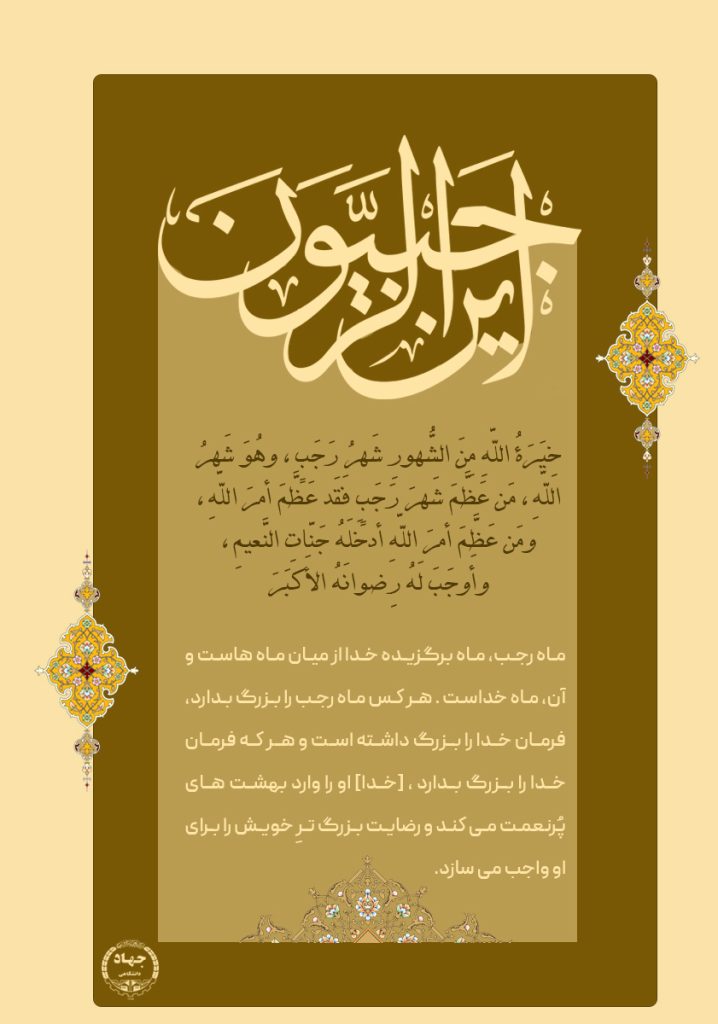 این الرجبیون
خِيَرَةُ اللّهِ مِنَ الشُّهورِ شَهرُ رَجَبٍ ، وهُوَ شَهرُ
اللّهِ ، مَن عَظَّمَ شَهرَ رَجَبٍ فَقَد عَظَّمَ أمرَ اللّهِ ،
ومَن عَظَّمَ أمرَ اللّهِ أدخَلَهُ جَنّاتِ النَّعيمِ ،
وأوجَبَ لَهُ رِضوانَهُ الأَكبَرَ
ماه رجب، ماه برگزیده خدا از میان ماه هاست و
آن، ماه خداست . هر کس ماه رجب را بزرگ بدارد،
فرمان خدا را بزرگ داشته است و هر که فرمان
خدا را بزرگ بدارد ، [خدا] او را وارد بهشت های
پُرنعمت می کند و رضایت بزرگ ترِ خویش را برای
او واجب می سازد.
جهاد
دانشگاهی